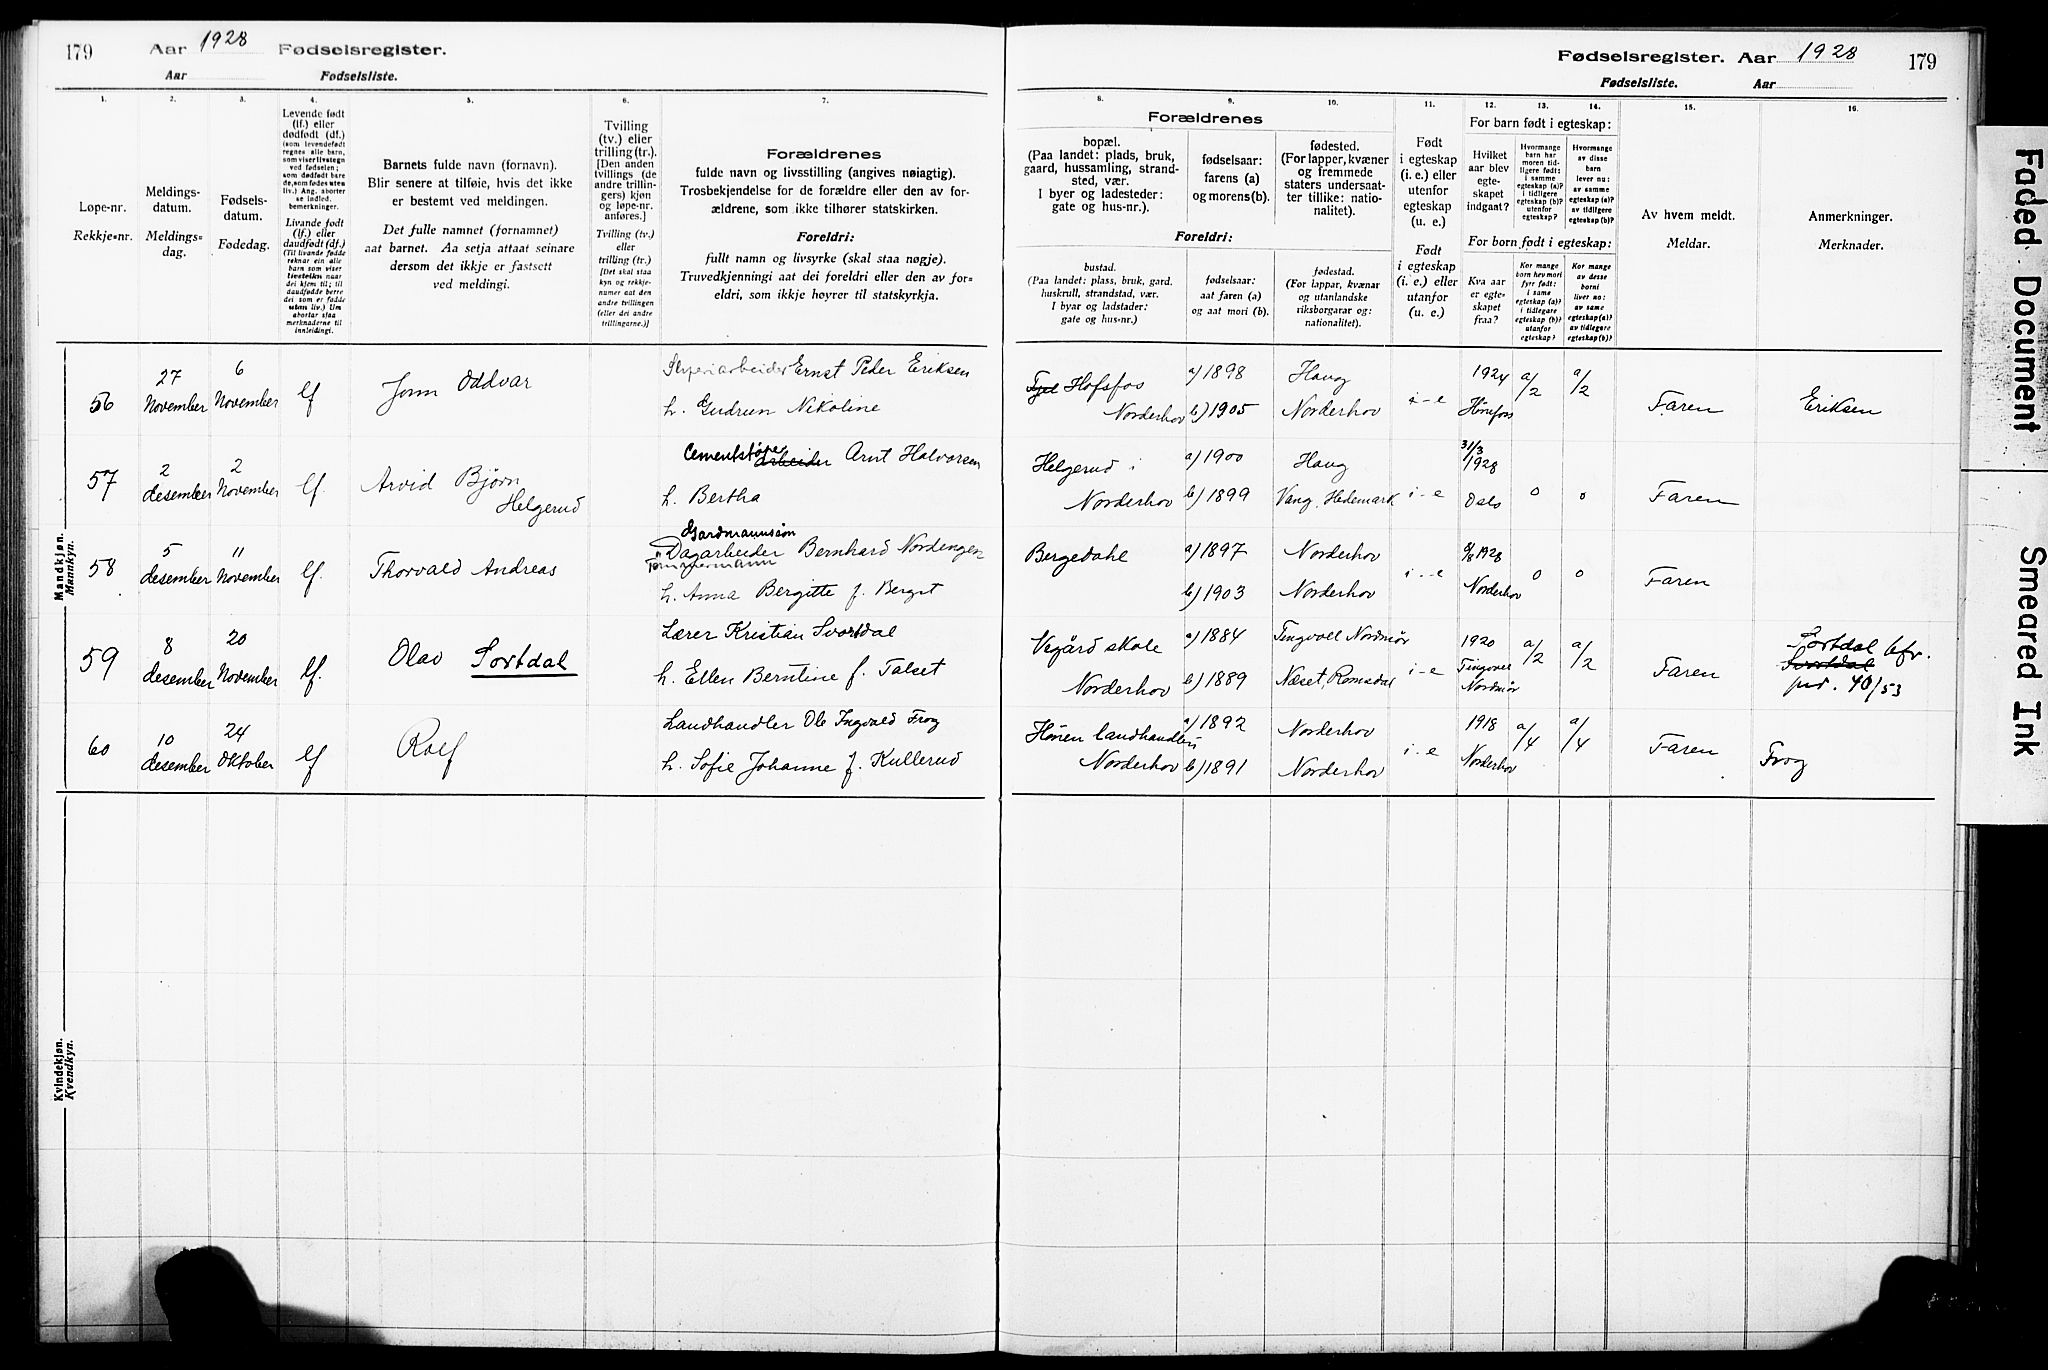 179 Aar 1928 Fødselsregister.
Aar Fødselsliste.
Fødselsregister. Aar 1928 179
Fødselsliste. Aar
1. 2. 3. 4. 5. 6. 7.
Løpe-nr.
Rekkje-nr.
Meldings-
datum.
Meldings-
dag.
Fødsels-
datum.
Fødedag.
Levende født
(lf.) eller
dødfødt (df.)
(som levendefødt
regnes alle barn,
som viser livstegn
ved fødselen;
som dødfødt bare
de, som fødes uten
liv.) Ang. aborter
se indled.
bemerkninger.
Livande født
(lf.) eller
daudfødt (df.)
(Til livande fødde
reknar ein alle
barn som viser
livsteikn naar
dei kjem til; til
daudfødde berre
dei som er fødde
utan liv.) Um
abortar sjaa
merknaderne til
innleidingi.
Barnets fulde navn (fornavn).
Blir senere at tilføie, hvis det ikke
er bestemt ved meldingen.
Det fulle namnet (fornamnet)
aat barnet. Aa setja attaat seinare
dersom det ikkje er fastsett
ved meldingi.
Tvilling
(tv.) eller
trilling (tr.).
[Den anden
tvillings (de
andre trillin-
gers) kjøn
og løpe-nr.
anføres.]
Tvilling (tv.)
eller
trilling (tr.)
[Det skal staa
kyn og rekkje-
numer aat den
andre tvillingen
(eller dei andre
trillingarne.)]
Forældrenes
fulde navn og livsstilling (angives nøiagtig).
Trosbekjendelse for de forældre eller den av for-
ældrene, som ikke tilhører statskirken.
Foreldri:
fullt namn og livsyrke (skal staa nøgje).
Truvedkjenningi aat dei foreldri eller den av for-
eldri, som ikkje høyrer til statskyrkja.
8. 9. 10. 11. 12. 13. 14. 15. 16.
Forældrenes
bopæl.
(Paa landet: plads, bruk,
gaard, hussamling, strand-
sted, vær.
I byer og ladesteder:
gate og hus-nr.).
fødselsaar:
farens (a)
og morens (b).
fødested.
(For lapper, kvæner
og fremmede
staters undersaat-
ter tillike: natio-
nalitet).
Foreldri:
bustad.
(Paa landet: plass, bruk, gard.
huskrull, strandstad, vær.
I byar og ladstader:
gate og hus-nr.)
fødselsaar:
aat faren (a)
og aat mori (b).
fødestad.
(For lappar, kvænar
og utanlandske
riksborgarar og:
nationalitet).
Født
i egteskap
(i. e.) eller
utenfor
egteskap
(u. e.)
Født
i egteskap
(i. e.) eller
utanfor
(u. e.)
For barn født i egteskap:
Hvilket
aar blev
egte-
skapet
indgaat?
Hvormange
barn har
moren tid-
ligere født:
i samme
egteskap (a)?
i tidligere
egteskap (b)?
utenfor
egteskap?
Hvormange
av disse
barn
lever nu:
av samme
egteskap (a)?
av tidligere
egteskap (b)?
For born født i egteskap:
Kva aar
er egte-
skapet
fraa?
Kor mange
born hev mori
fyrr født:
i same
egteskap (a)?
i tidlegare
egteskap (b)?
utanfor
egteskap?
Kor mange
av desse
borni
liver no:
av same
egteskap (a)?
av tidlegare
egteskap (b)?
Av hvem meldt.
Meldar.
Anmerkninger.
Merknader.
Mandkjøn.
Mannkyn.
56 27 November 6 November lf Jonn Oddvar
Ernst Peder Eriksen
h. Gudrun Nikoline
Hofsfos Norderhov a) 1898 b) 1905 Haug Norderhov i-e 1924 Hønefoss a/2 a/2 Faren Eriksen
57 2 desember 2 November lf. Arvid Bjørn Helgerud
Cementstøper arbeider Arnt Halvorsen
h. Bertha
Helgerud i Norderhov a) 1900 b) 1899 Haug Vang, Hedemark i-e 31/3 1928 Oslo 0 0 Faren
58 5 desember 11 November lf. Thorvald Andreas
Gardmannssøn
Dagarbeider Bernhard Nordengen
Tømmermann
h. Anna Bergitte f. Berget
Bergedahl a) 1897 b) 1903 Norderhov Norderhov i-e 1928 Norderhov 0 0 Faren
59 8 desember 20 November lf. Olav Sortdal
Lærer Kristian Svortdal
h. Ellen Berntine f. Talset
Vegård skole Norderhov a) 1884 b) 1889 Tingvoll Nordmør Næset, Romsdal i-e 1920 Tingvoll Nordmør a/2 a/2 Faren
Sortdal bfr.
Svortdal
prd. 40/53
60 10 desember 24 Oktober lf Rolf
Landhandler Ole Ingvald Frog
h. Sofie Johanne f. Kullerud
Hønen landhandleri Norderhov a) 1892 b) 1891 Norderhov Norderhov i-e 1918 Norderhov a/4 a/4 Faren Frog
Kvindekjøn.
Kvendkyn.
Faded Document
Smeared Ink